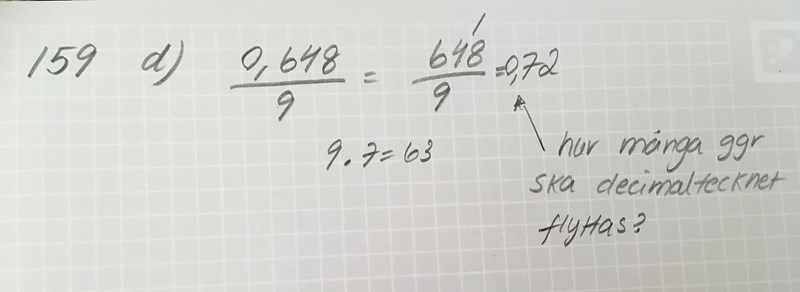 159 d) 0,648/9 = 648/9 = 0,72
1
9 · 7 = 63
hur många ggr
ska decimaltecknet
flyttas?